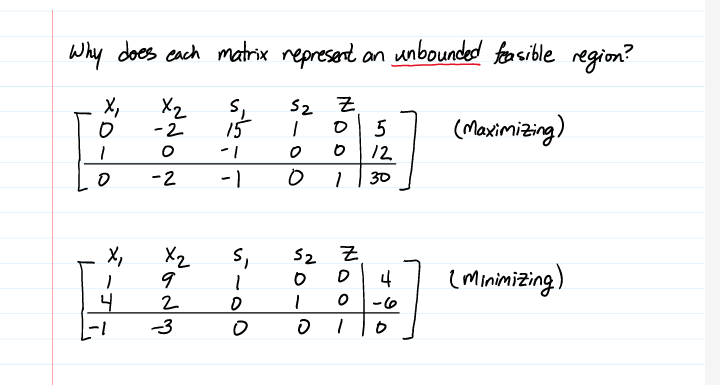 Why does each matrix represent an unbounded feasible region?
X₁ X₂ S₁ S₂ Z
0 -2 15 1 0 5 (Maximizing)
1 0 -1 0 0 12
0 -2 -1 0 1 30
X₁ X₂ S₁ S₂ Z
1 9 1 0 0 4 (Minimizing)
4 2 0 1 0 -6
-1 -3 0 0 1 0